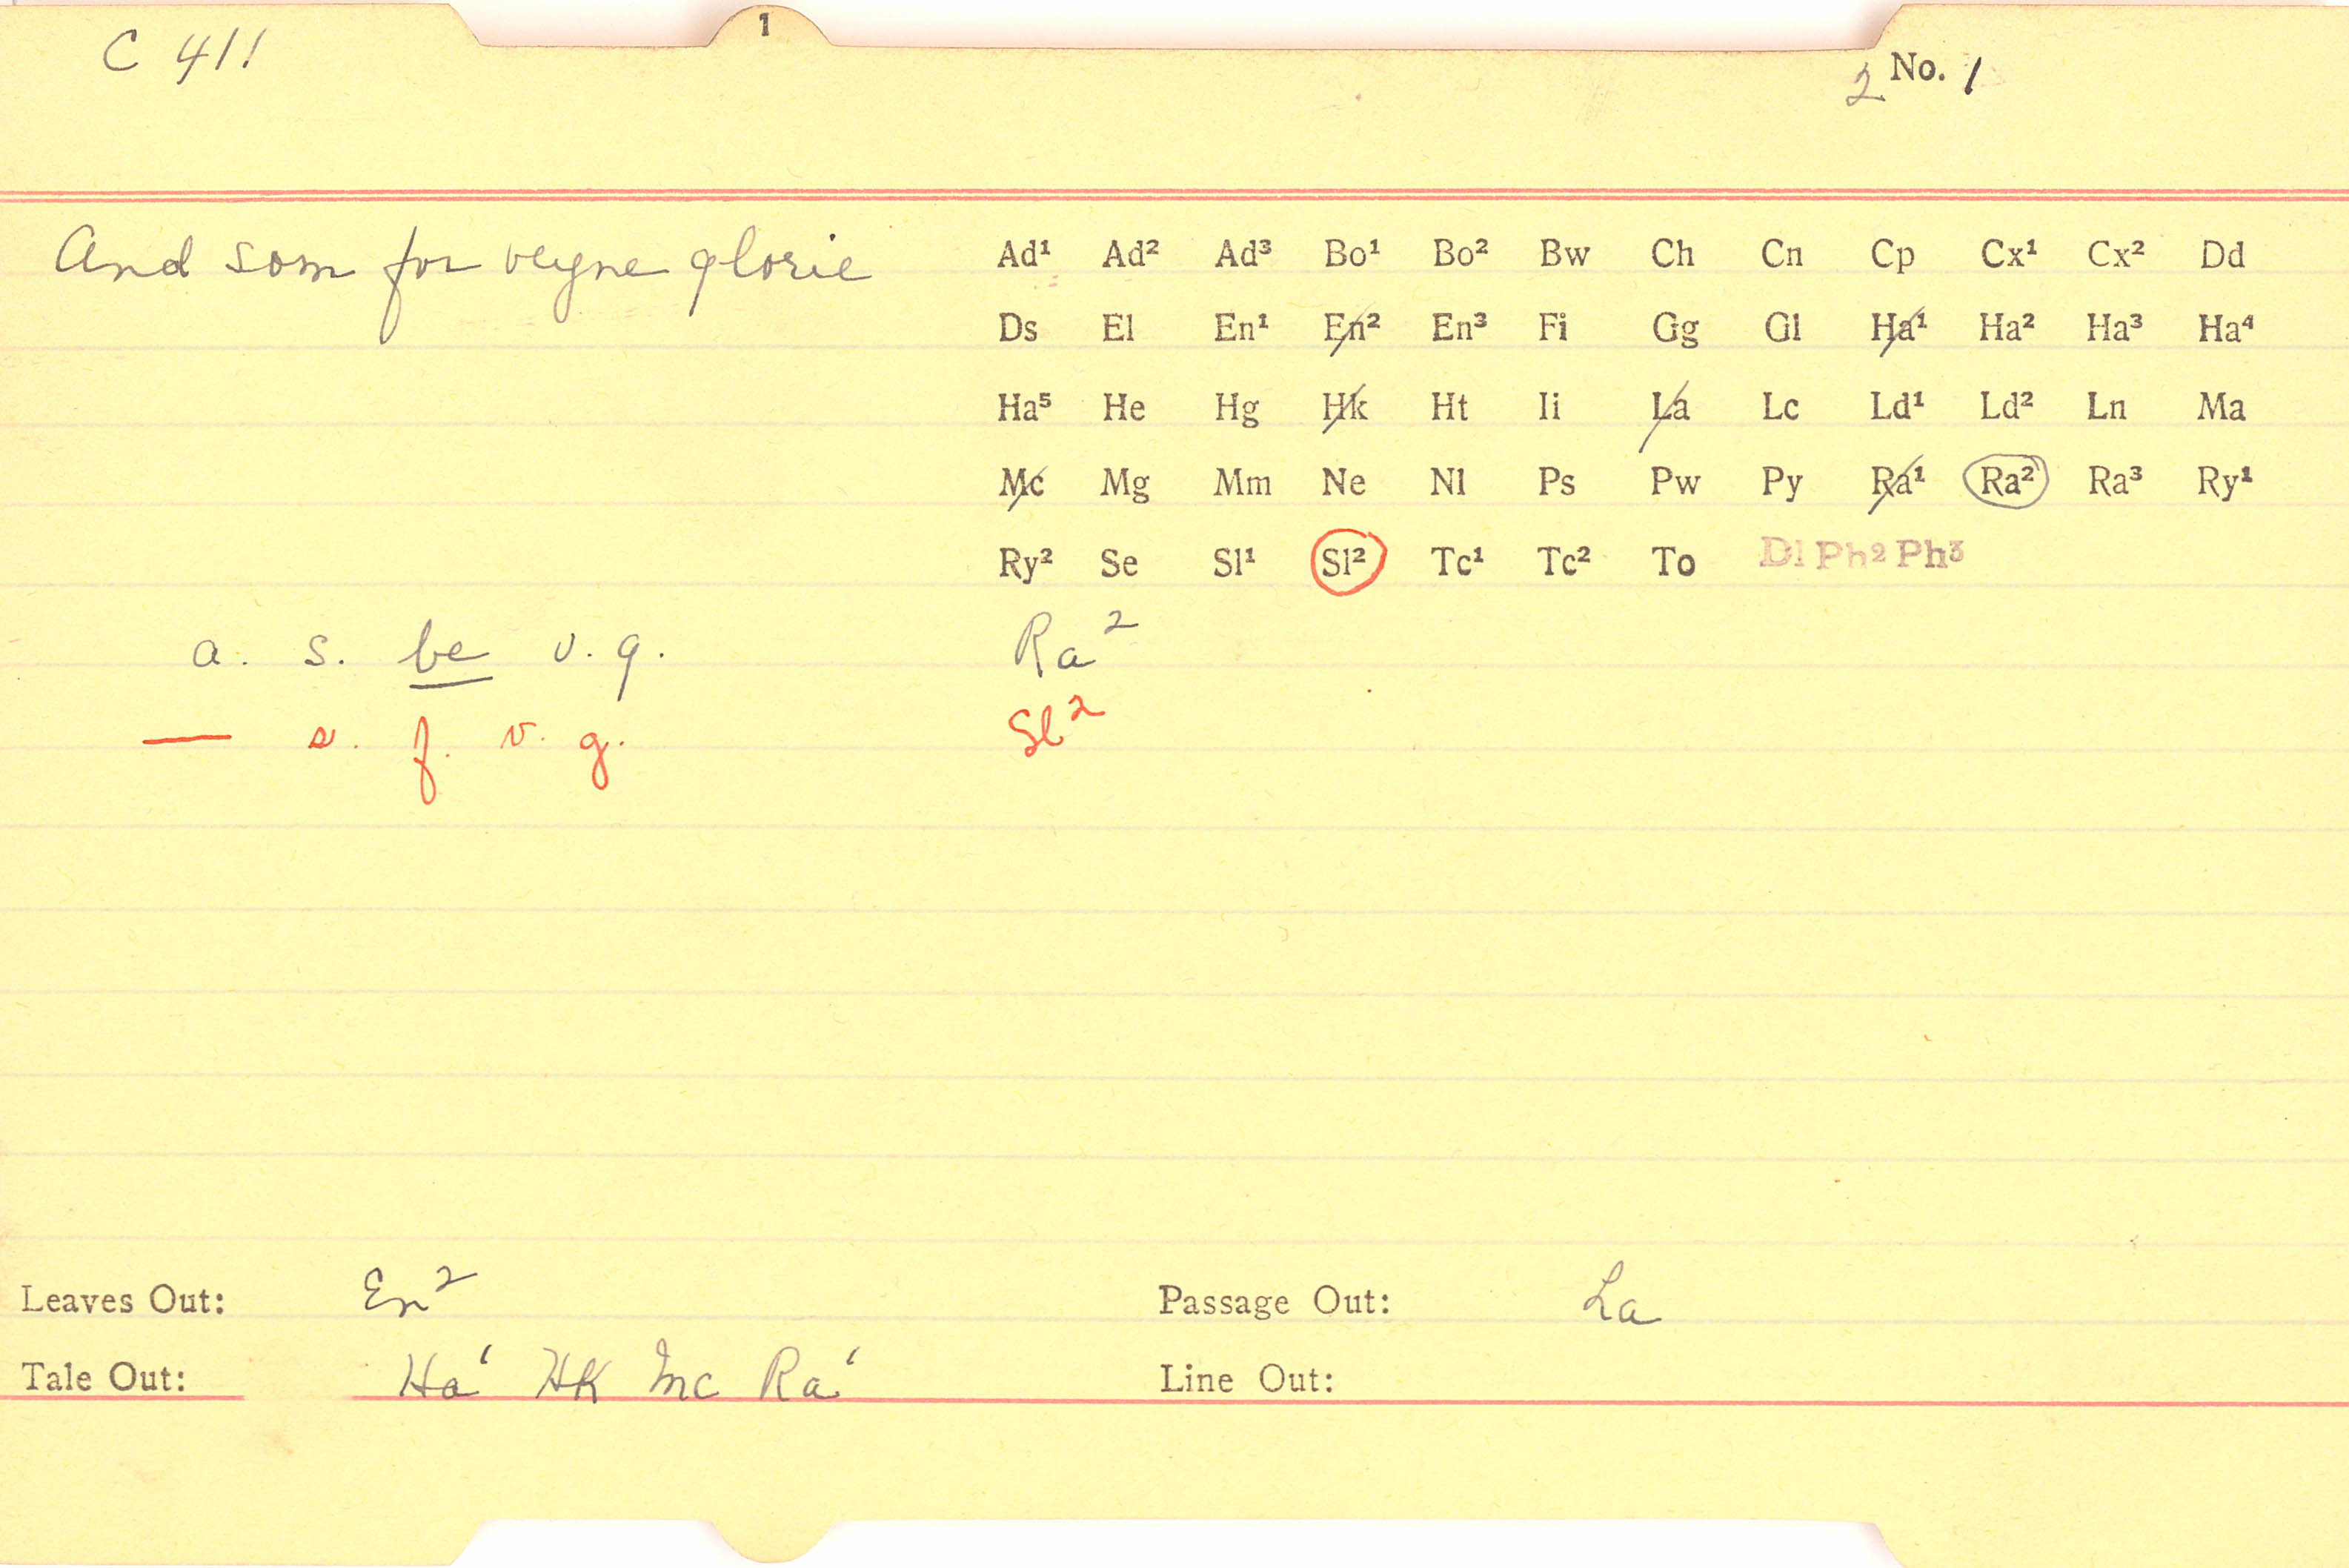 1
C 411
2 No. 1
And som for veyne glorie
Ad¹ Ad² Ad³ Bo¹ Bo² Bw Ch Cn Cp Cx¹ Cx² Dd
Ds El En¹ En² En³ Fi Gg Gl Ha¹ Ha² Ha³ Ha⁴
Ha⁵ He Hg Hk Ht Ii La Lc Ld¹ Ld² Ln Ma
Mc Mg Mm Ne Nl Ps Pw Py Ra¹ Ra² Ra³ Ry¹
Ry² Se Sl¹ Sl² Tc¹ Tc² To Dl Ph² Ph³
a. s. be v. g. Ra²
— s. f. v. g. Sl²
Leaves Out: En² Passage Out: La
Tale Out: Ha¹ HK Mc Ra¹ Line Out: